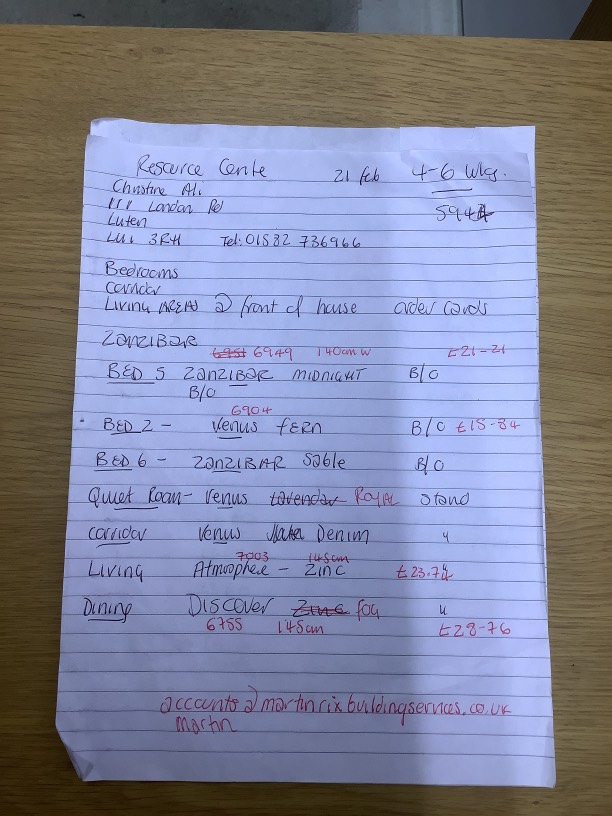 Resource Cente 21 feb 4-6 Wks.
Christine Ali
111 London Rd 5944
Luten
LU1 3RH Tel: 01582 736966
Bedrooms
corridor
Living AREAS @ front of house order cards
ZANZIBAR
6951 6949 140cm w £21-21
BED 5 ZANZIBAR MIDNIGHT B/O
B/O
6904
BED 2 - Venus fERN B/O £15-84
BED 6 - ZANZIBAR Sable B/O
Quiet Room - Venus Lavender Royal Stand
corridor Venus Denim "
7003 145cm
Living Atmosphere - Zinc £23.74 "
Dining DISCOVER Zinc fOG "
6755 145cm £28-76
accounts@martinrixbuildingservices.co.uk
martin